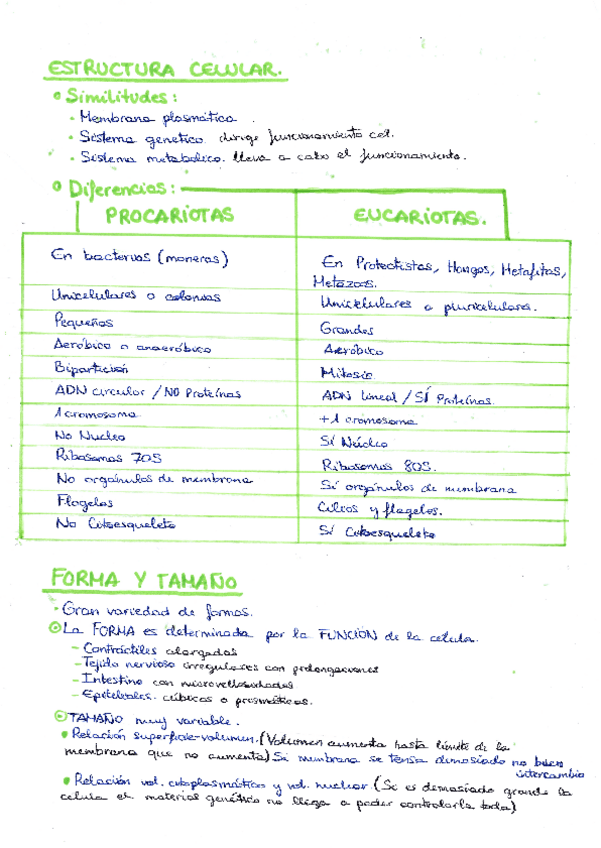 ESTRUCTURA CELULAR.
Similitudes:
- Membrana plasmática.
- Sistema genetico. dirige funcionamiento cel.
- Sistema metabolico. lleva a cabo el funcionamiento.
Diferencias:
PROCARIOTAS EUCARIOTAS.
En bacterias (moneras) En Protoctistas, Hongos, Metafitas,
Metazoos.
Unicelulares o colonias Unicelulares o pluricelulares.
Pequeñas Grandes
Aeróbico o anaeróbico Aeróbico
Bipartición Mitosis
ADN circular / NO Proteínas ADN lineal / SÍ Proteínas.
1 cromosoma +1 cromosoma
No Nucleo Sí Núcleo
Ribosomas 70S Ribosomas 80S.
No orgánulos de membrana Sí orgánulos de membrana
Flagelos Cilios y flagelos.
No Citoesqueleto Sí Citoesqueleto
FORMA Y TAMAÑO
- Gran variedad de formas.
La FORMA es determinada por la FUNCIÓN de la celula.
- Contráctiles alargadas
- Tejido nervioso irregulares con prolongaciones
- Intestino con microvellosidades
- Epiteliales. cúbicas o prismáticas.
TAMAÑO muy variable.
Relación superficie-volumen. (Volumen aumenta hasta límite de la
membrana que no aumenta) Si membrana se tensa demasiado no buen
intercambio
Relación vol. citoplasmático y vol. nuclear. (Si es demasiado grande la
celula el material genético no llega a poder controlarla toda)